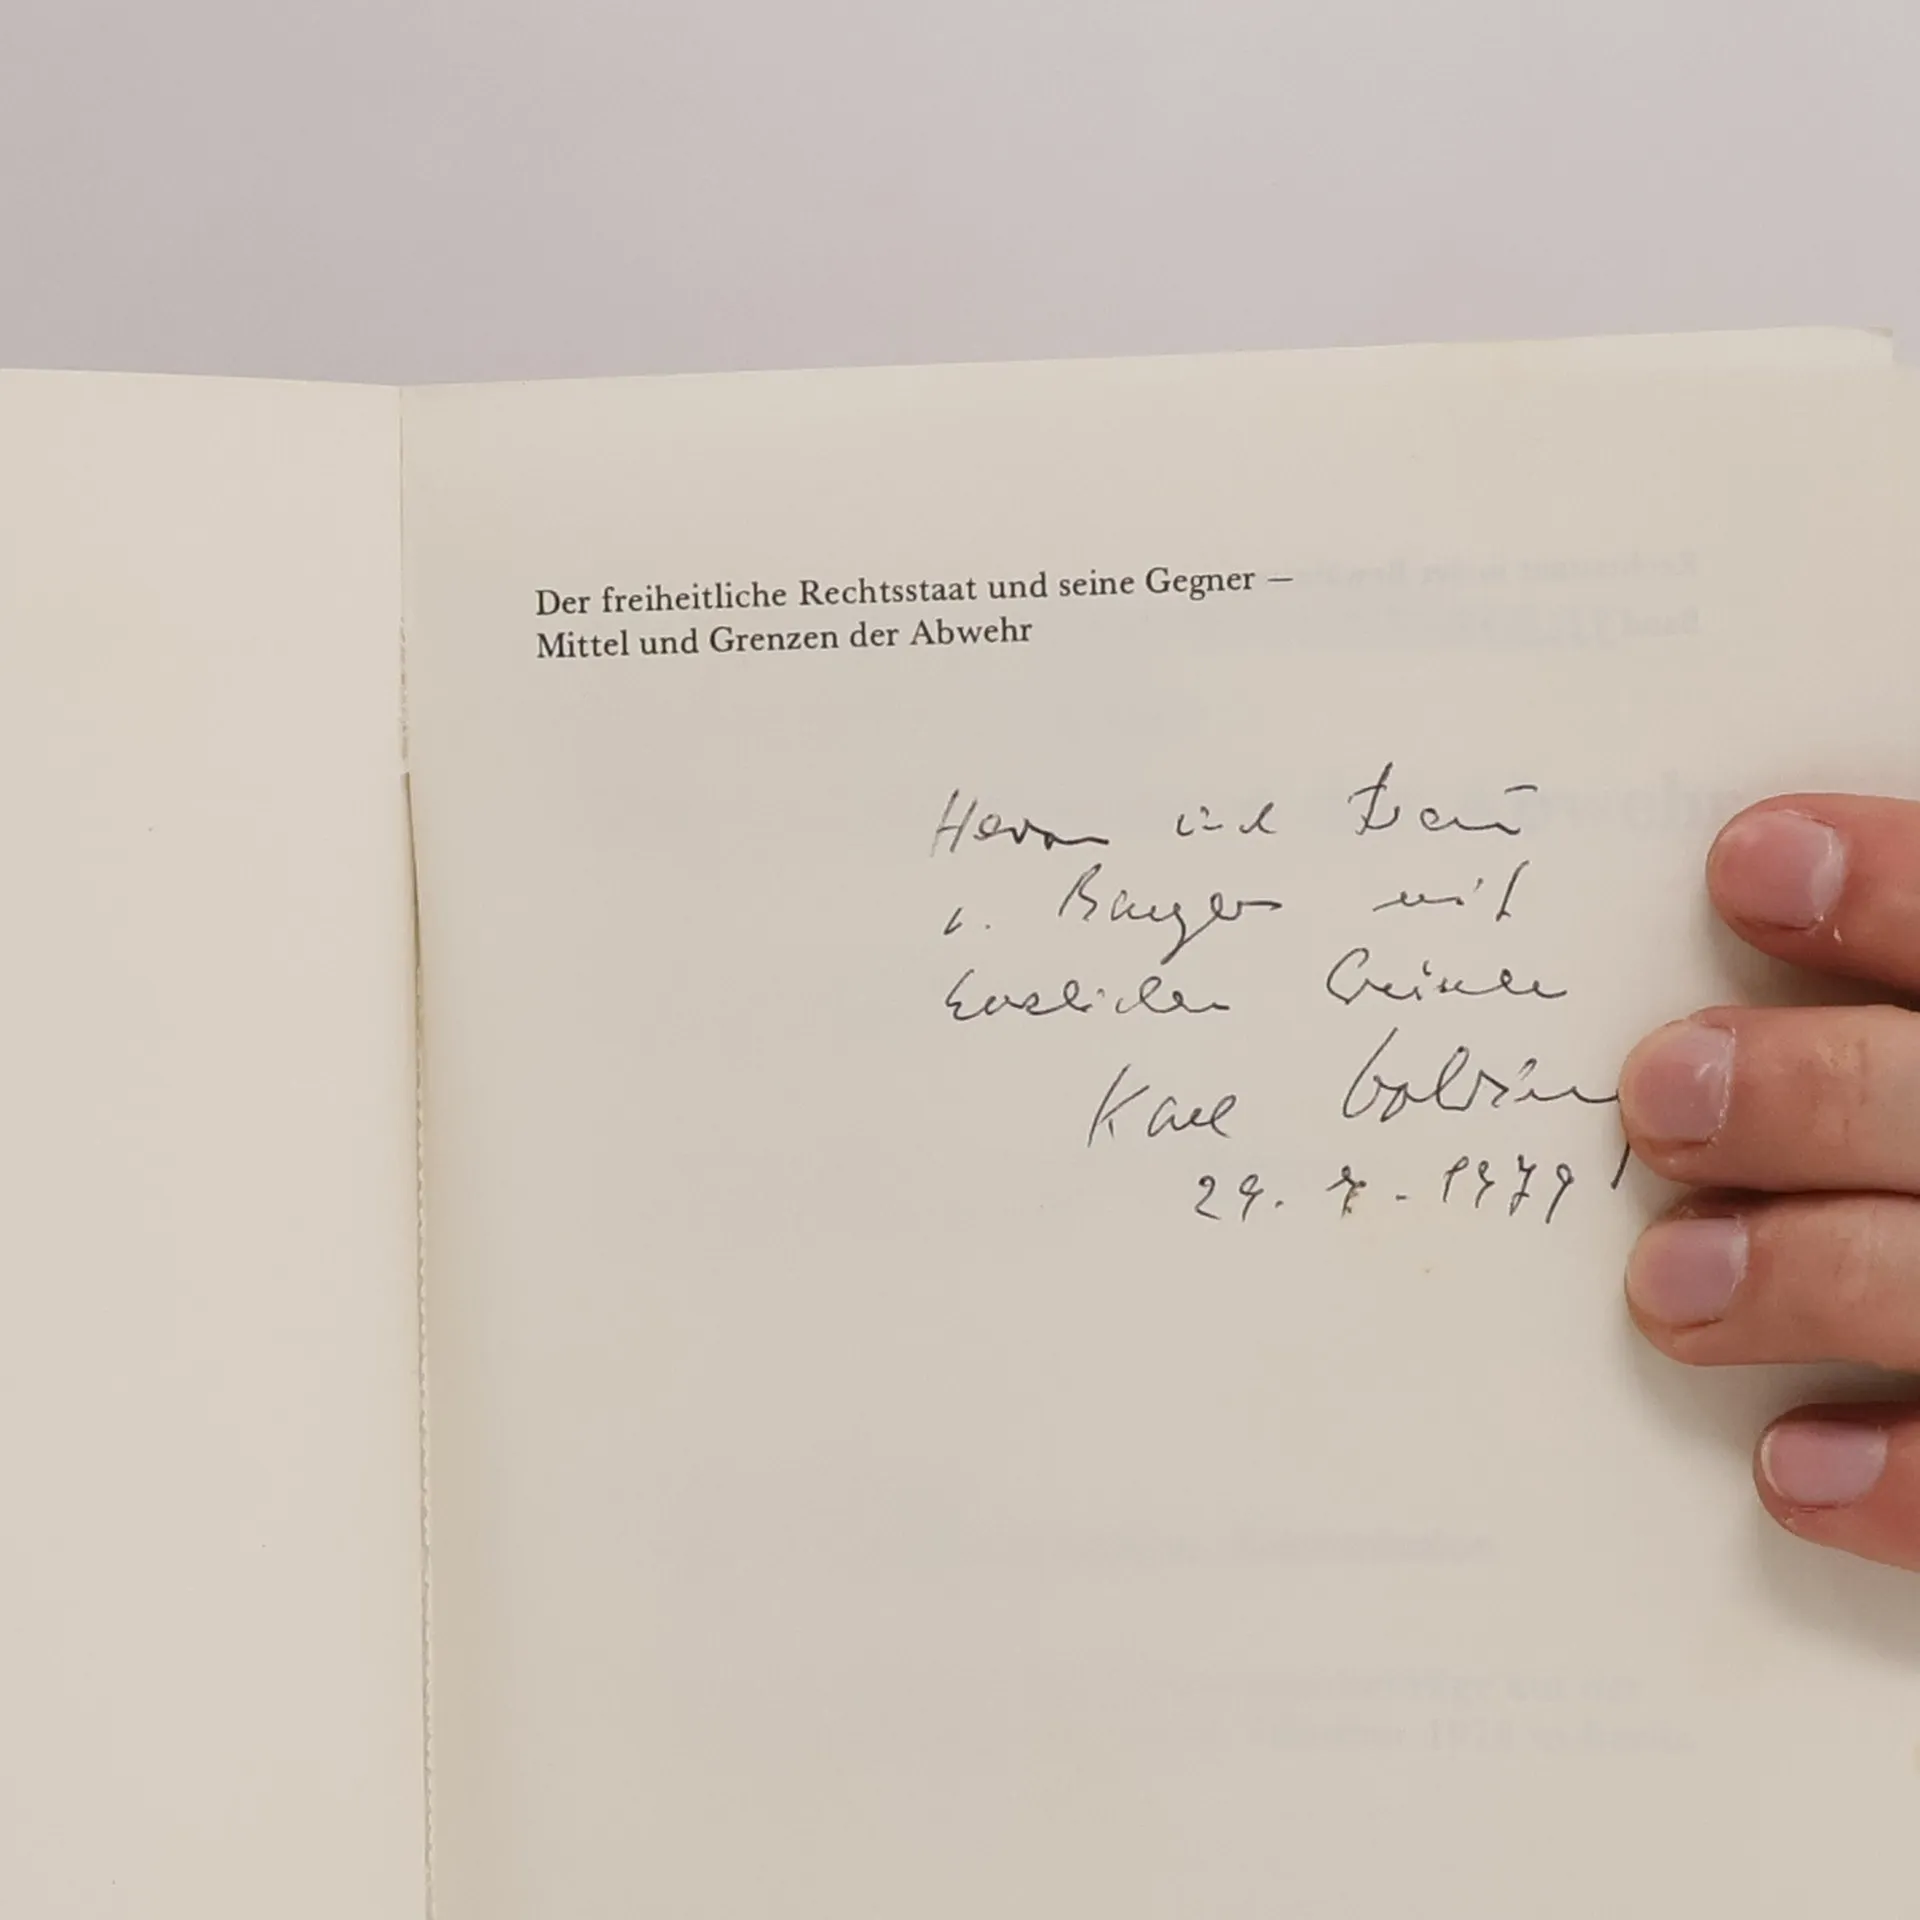 Der freiheitliche Rechtsstaat und seine Gegner —
Mittel und Grenzen der Abwehr
Herrn und Frau
v. mit
herzlichen Grüssen
Karl
29. 7. 1979